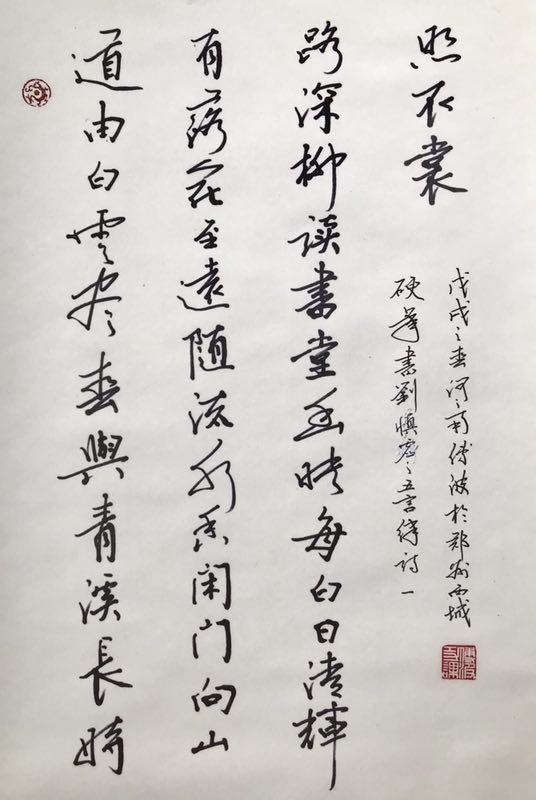 道由白雲尽春與青溪長時
有落花至遠随流水香闲门向山
路深柳读書堂幽映每白日清輝
照衣裳
硬筆書劉慎虚之五言律诗一
戊戌之春河南傅波於郑州西城